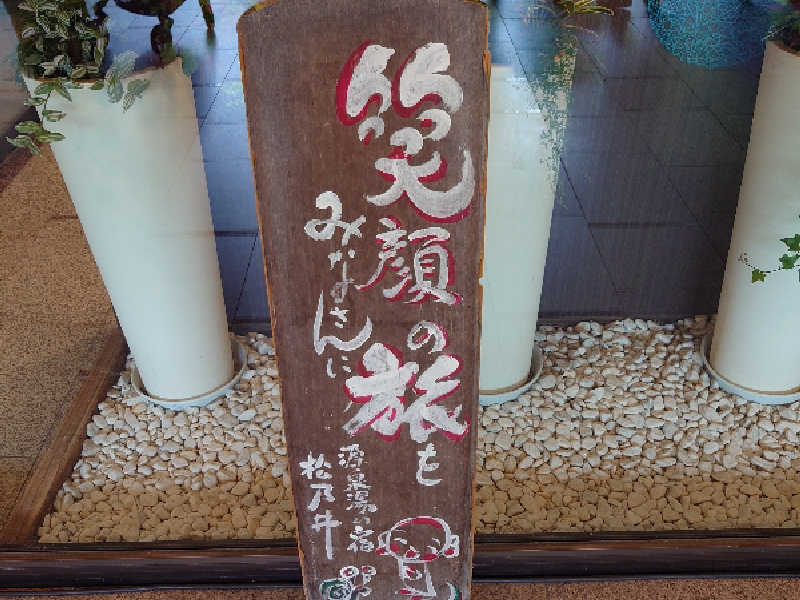 笑顔の旅も
みなさんに
源泉湯の宿
松乃井